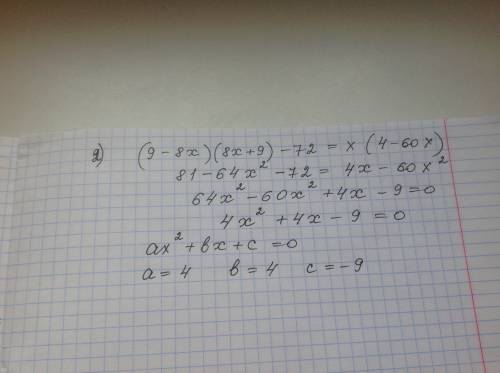 2) (9-8x)(8x+9)-72 = x(4-60x)
81-64x²-72 = 4x-60x²
64x²-60x²+4x-9=0
4x²+4x-9=0
ax²+bx+c=0
a=4 b=4 c=-9